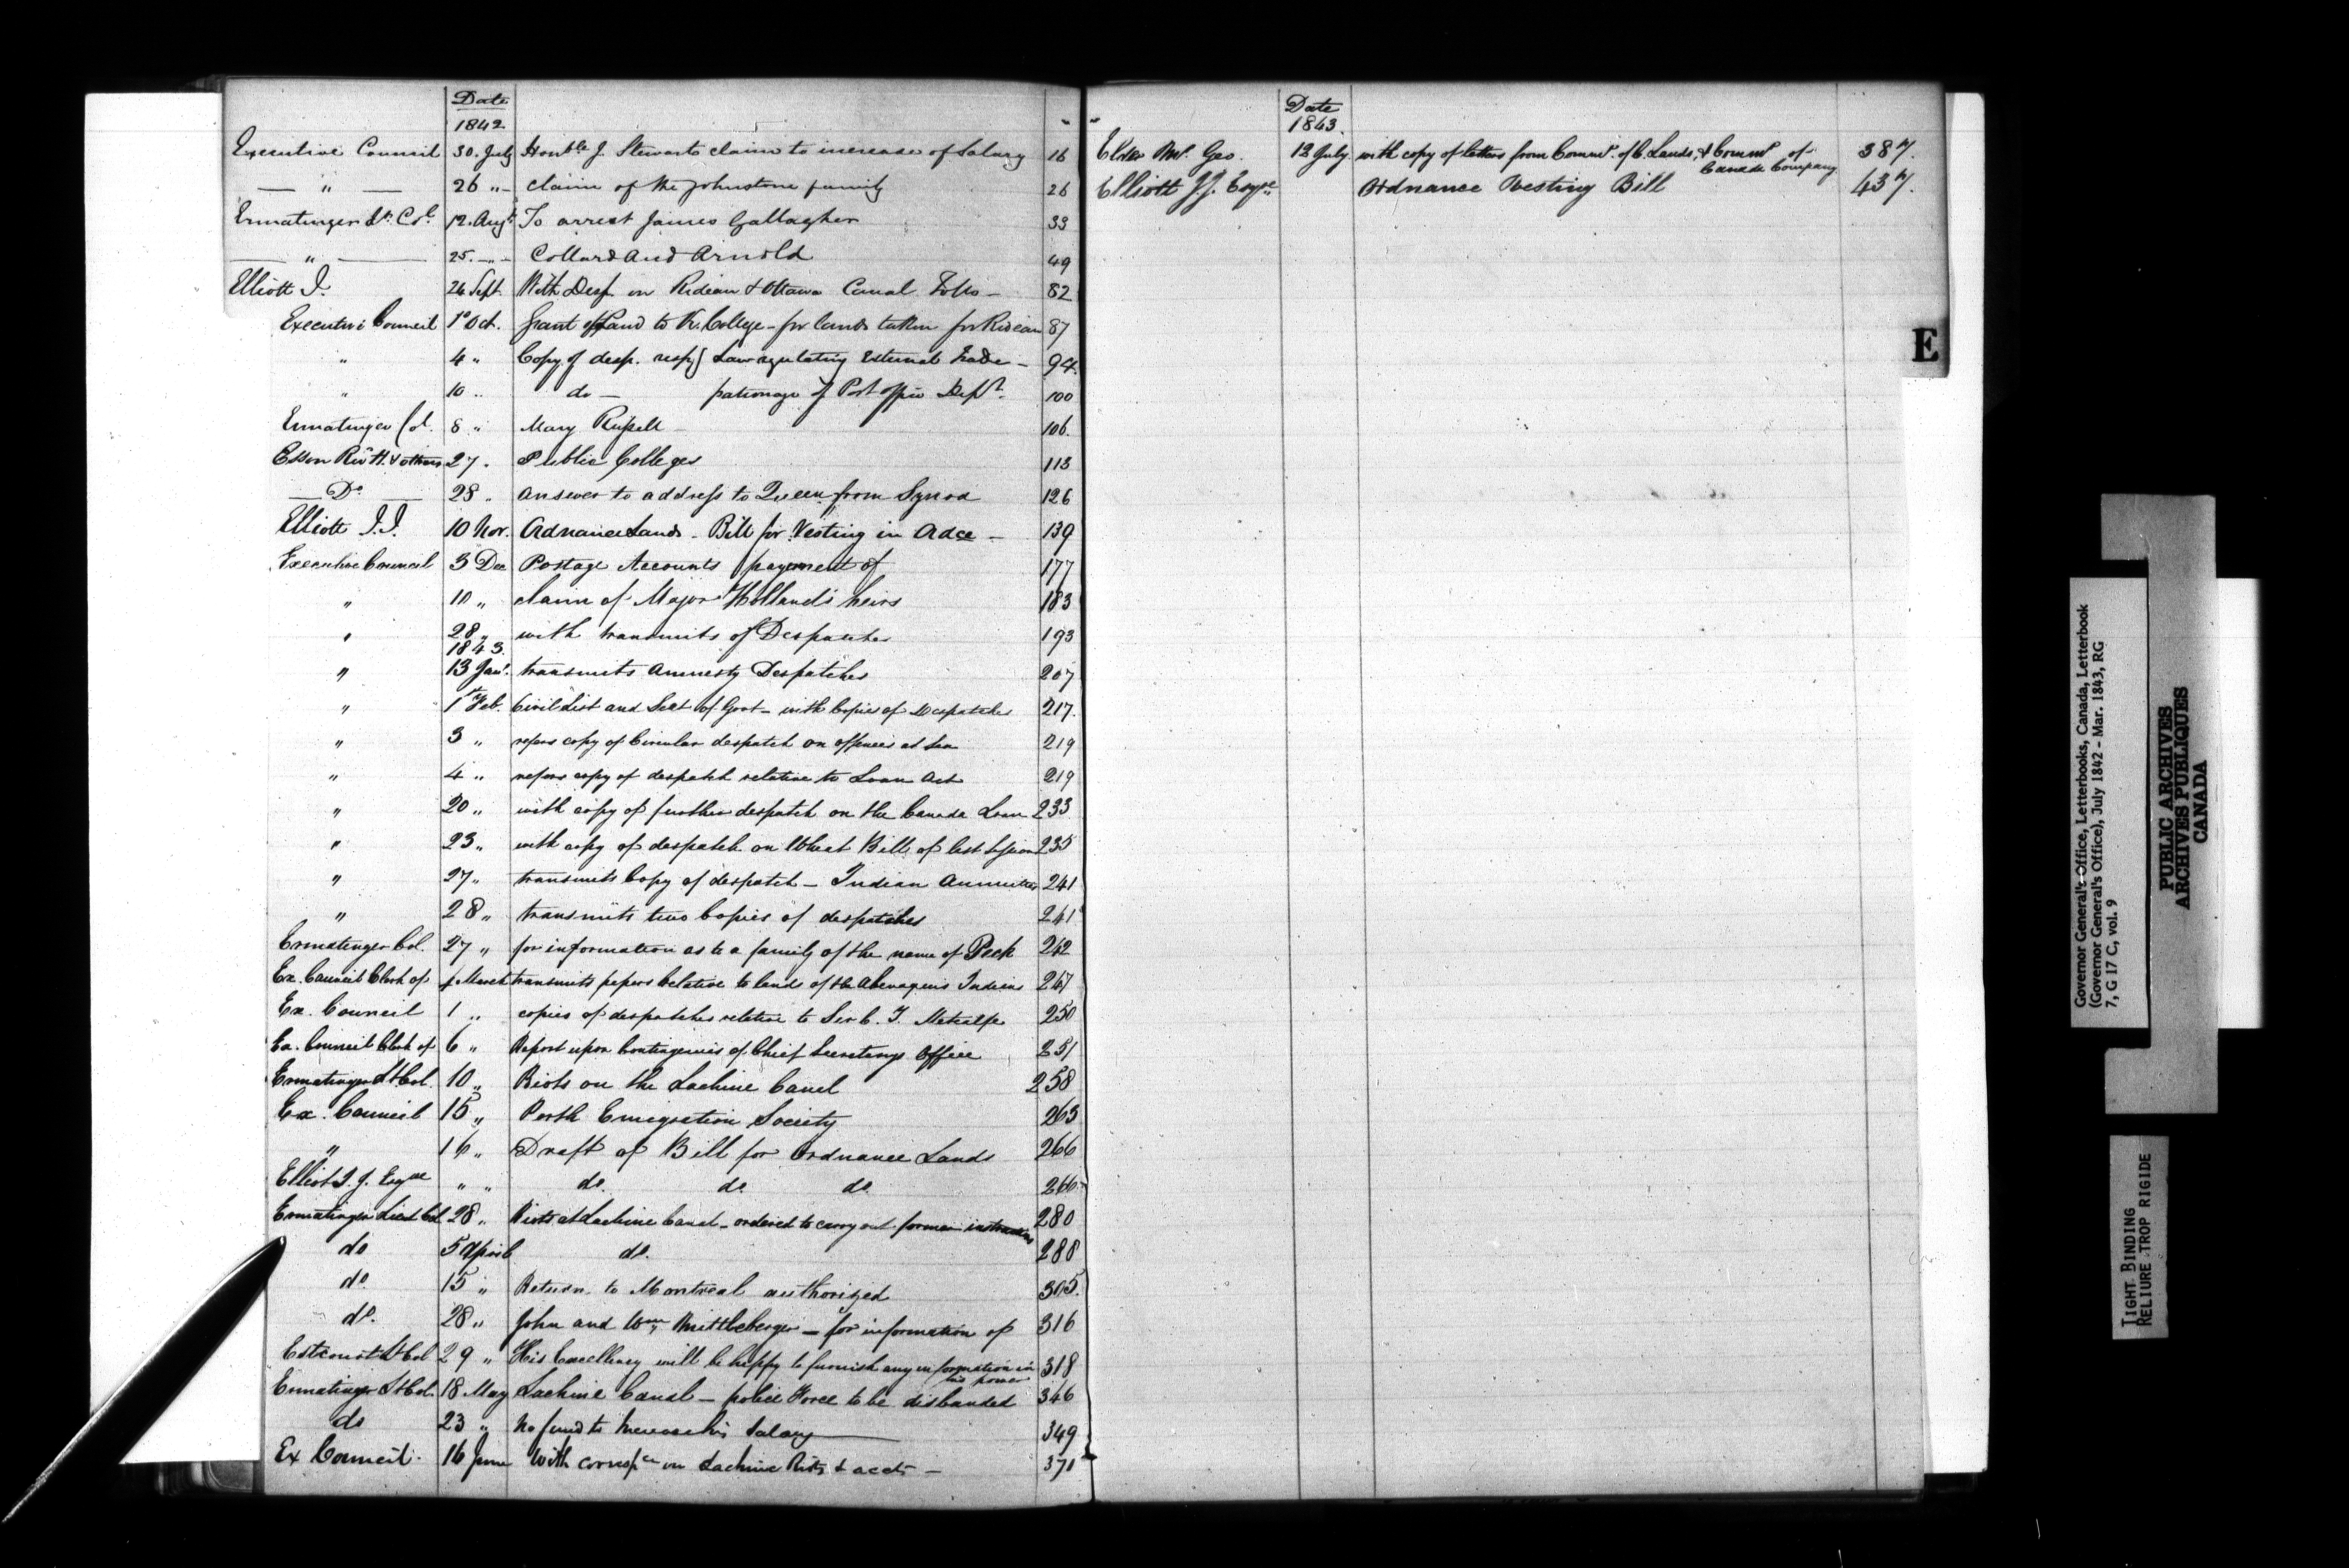 Date
1842
Executive Council 30. July Honble J. Stewarts claim to increase of Salary 16
— " — 26 " — claim of the Johnstone family 26
Ermatinger Lt. Col. 12. Augt. To arrest James Gallagher 33
— " — 25. — " — Collard and Arnold 49
Elliott J. 24 Sept. With Desp. on Rideau & Ottawa Canal Tolls — 82
Executive Council 1o Oct. Grant of Land to K. College - for lands taken for Rideau 87
" 4 " Copy of desp. respg Law regulating External Trade — 94.
" 10 " do — patronage of Post office Dept. 100
Ermatinger Col. 8 " Mary Russell — 106.
Esson Rev H. & others 27 " Public Colleges 113
— Do — 28 " Answer to address to Queen from Synod 126
Elliott J.J. 10 Nov. Ordnance Lands - Bill for Vesting in Odce — 139
Executive Council 3 Dec Postage Accounts payment of 177
" 10 " claim of Major Holland's heirs 183
" 28 " with transmits of Despatches 193
1843.
" 13 Jany. transmits Amnesty Despatches 207
" 1st Feb. Civil List and Seat of Govt - with Copies of Despatches 217.
" 3 " refers copy of Circular despatch on offences at Sea 219
" 4 " refers copy of despatch relative to Loan Act 219
" 20 " with copy of further despatch on the Canada Loan 233
" 23 " with copy of despatch on Wheat Bill of last Session 235
" 27 " transmits Copy of despatch — Indian Annuities 241
" 28 " transmits two Copies of despatches 241
Ermatinger Col. 27 " for information as to a family of the name of Peck 242
Ex. Council Clerk of 1 March transmits papers relative to lands of the Abenaquis Indians 247
Ex. Council 1 " copies of despatches relative to Sir C. T. Metcalfe 250
Ex. Council Clerk of 6 " Report upon Contingencies of Chief Secretarys Office 251
Ermatinger Lt Col. 10 " Riots on the Lachine Canal 258
Ex. Council 15 " Perth Emigration Society 263
" 16 " Draft of Bill for Ordnance Lands 266
Elliot J. J. Esqre " " do. do do 266
Ermatinger Lieut Col 28 " Riots at Lachine Canal - ordered to carry out former instructions 280
do 5 April do. 288
do. 15 " Return to Montreal authorized 305.
do. 28 " John and Wm. Mittleberger — for information of 316
Estcourt Lt Col 29 " His Excellency will be happy to furnish any information in 318
his power
Ermatinger Lt Col. 18 May Lachine Canal — police Force to be disbanded 346
do 23 " No fund to increase his Salary — 349
Ex Council. 16 June With corresp.ce on Lachine Riots & accts — 371
Date
1843.
Elder Mr. Geo. 12 July. with copy of letters from Commr. of C. Lands, & Commr of 387.
Canada Company
Elliott J.J. Esqre Ordnance Vesting Bill 437.
E
Governor General's Office, Letterbooks, Canada, Letterbook
(Governor General's Office), July 1842 - Mar. 1843, RG
7, G 17 C, vol. 9
PUBLIC ARCHIVES
ARCHIVES PUBLIQUES
CANADA
TIGHT BINDING
RELIURE TROP RIGIDE